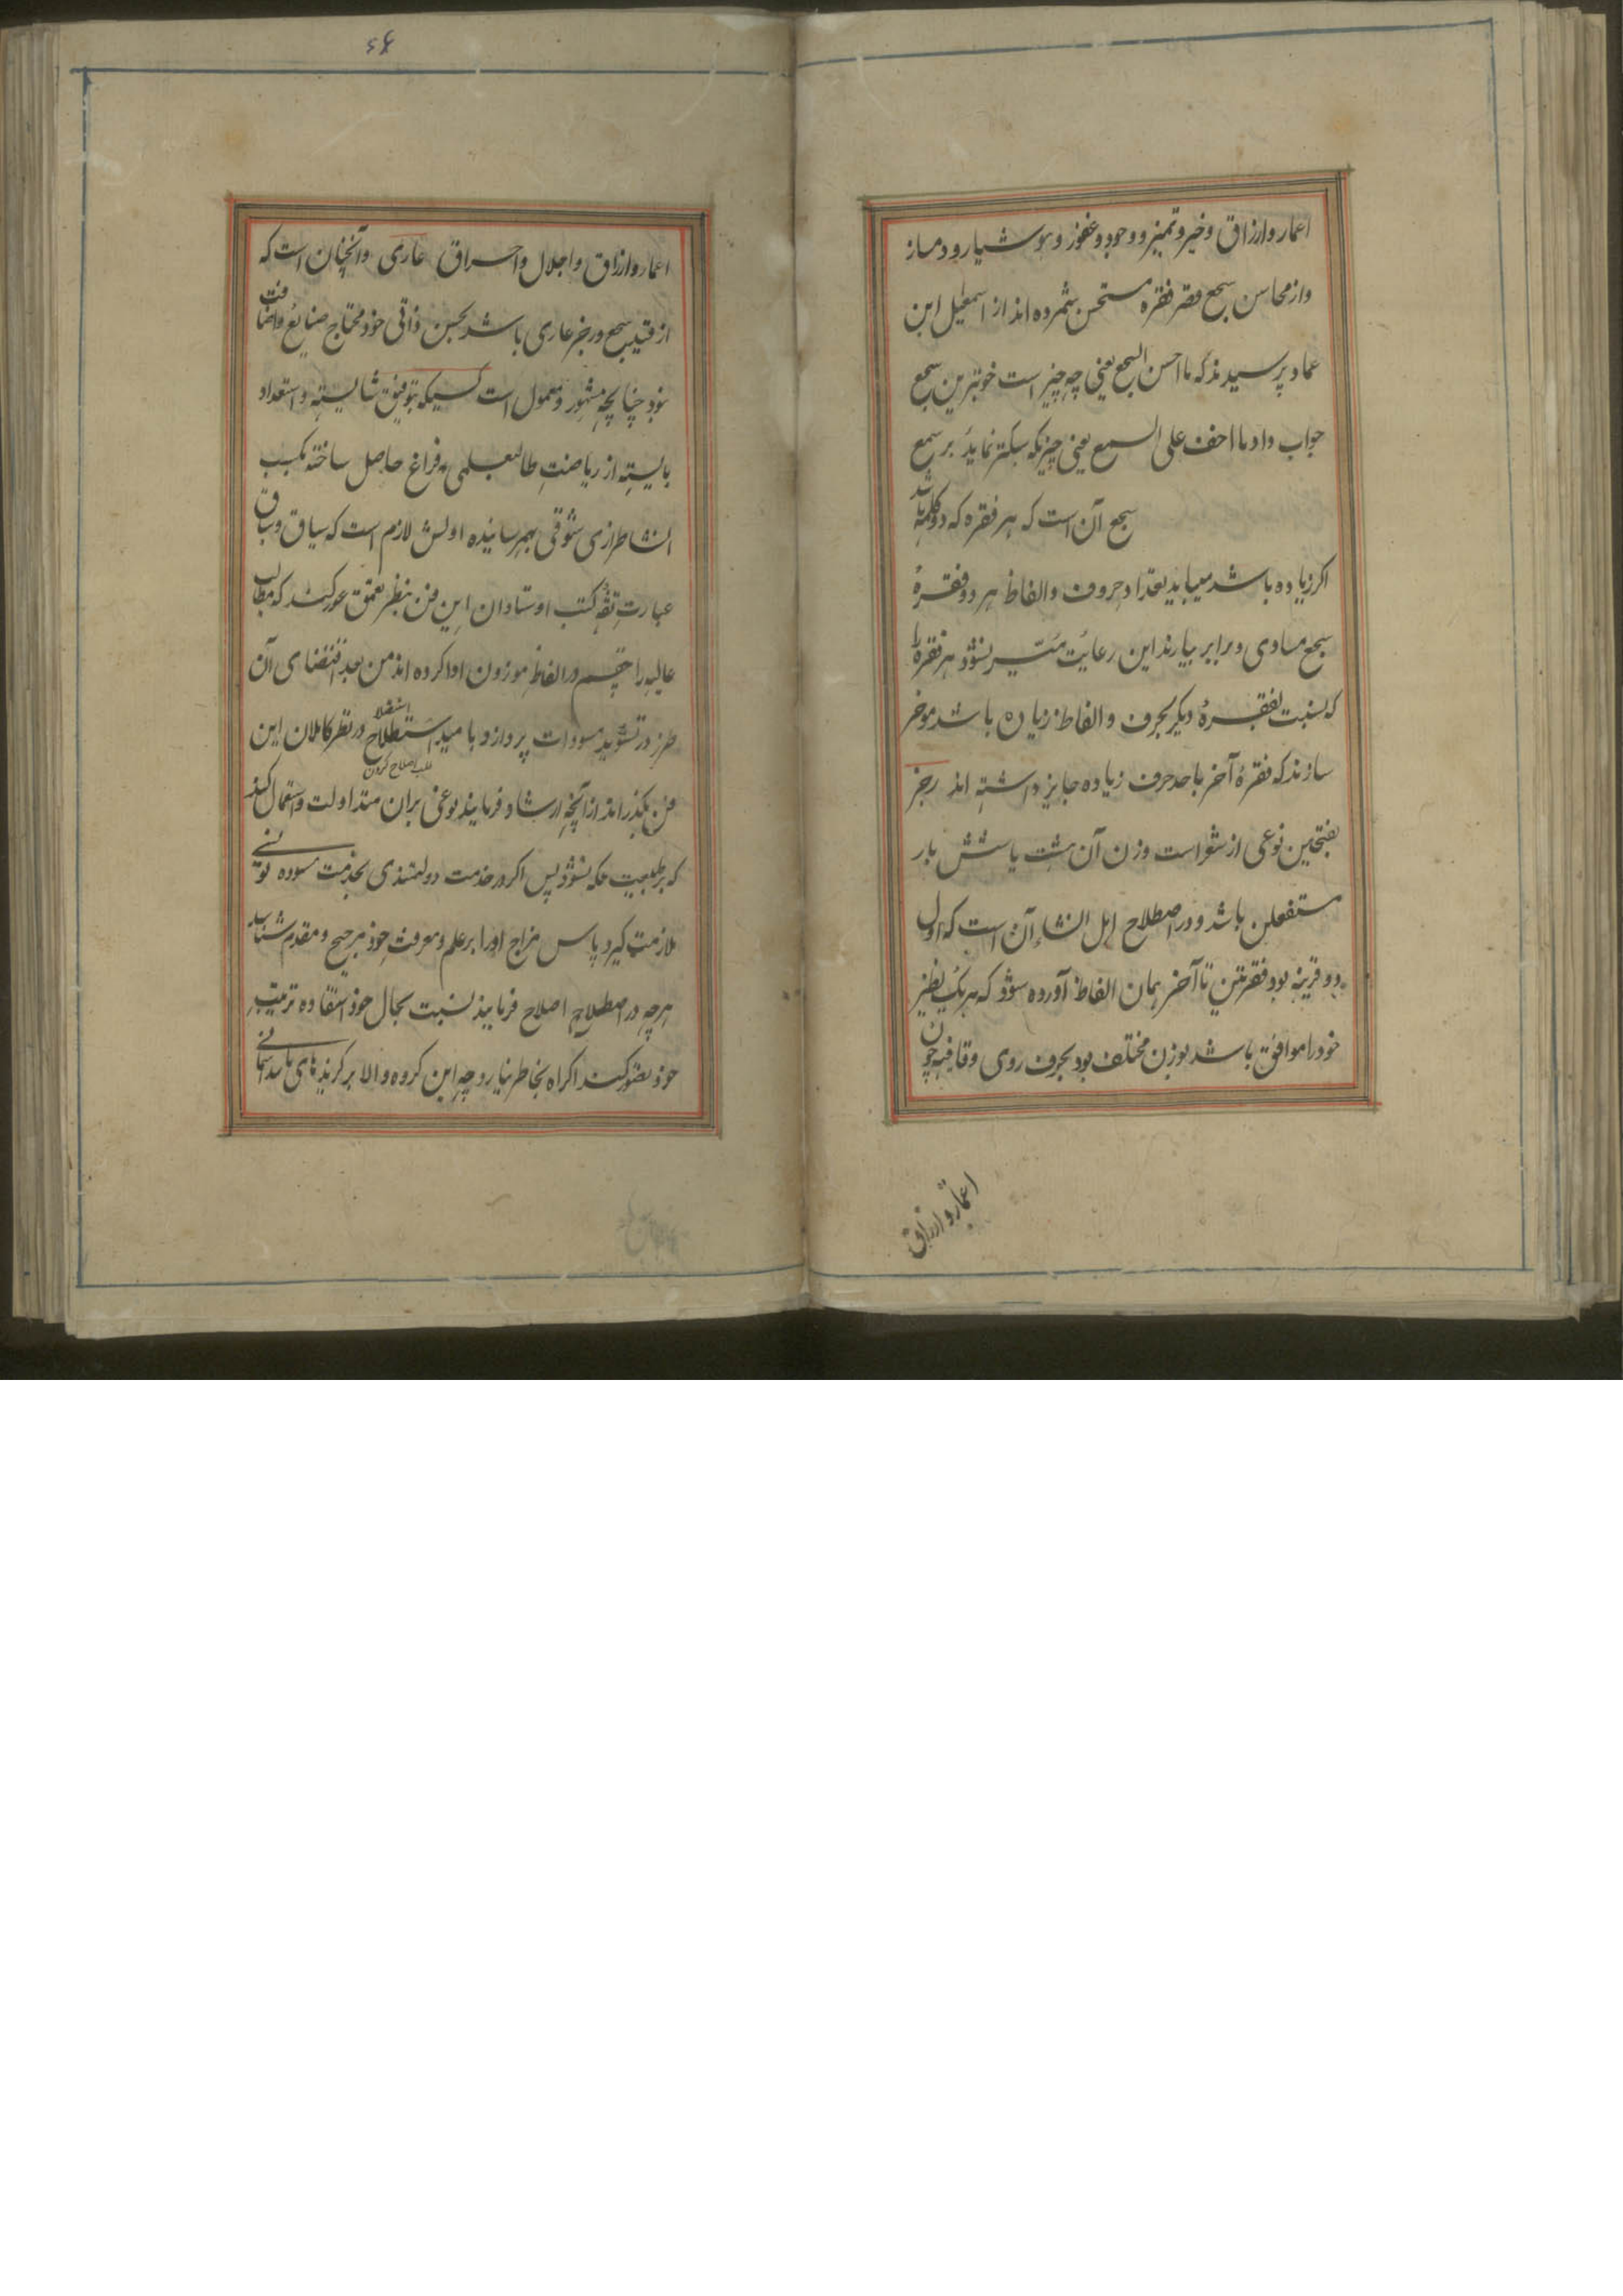 اعمار وارزاق وخیر وتمیز ووجود وغفور وهوشیار ودمساز
واز محاسن سجع قصر فقره مستحسن شمرده اند از اسمعیل ابن
عماد پرسیدند که ما احسن السجع یعنی چه چیز است خوبترین سجع
جواب داد ما اخف علی السمع یعنی چیزیکه سبکتر نماید بر سمع
سجع آن است که هر فقره که دو کلمه باشد
اکر زیاده باشد میباید بعتداد حروف والفاظ هر دو فقرهٔ
سجع مساوی وبرابر بیارند این رعایت میسر نشود هر فقره را
که نسبت بفقرهٔ دیکر بحرف والفاظ زیاده باشد موخر
سازند که فقرهٔ آخر باحد حرف زیاده جایز داشته اند رجز
بفتحین نوعی از شعر است وزن آن هشت یا شش بار
مستفعلن باشد ودر اصطلاح اهل انشاء آن است که اول
دو قرینه بود فقرتین تا آخر بهمان الفاظ آورده شود که هر یک نظیر
خود را موافق باشد بوزن مختلف بود بحرف روی وقافیه چون
اعمار وارزاق
اعمار وارزاق واجلال واحراق عاری وآنچنان است که
از قید سجع ورجز عاری باشد بحسن ذاتی خود محتاج صنایع واضافت
نبود چنانچه مشهور ومعمول است کسیکه بتوفیق شایسته واستعداد
بایسته از ریاضت طالبعلمی فراغ حاصل ساخته بکسب
انشاطرازی شوقی بهمرسانیده اولش لازم است که سیاق وسباق
عبارت کتب اوستادان این فن بنظر تعمق غور کند که مطالب
عالیه را چقسم در الفاظ موزون ادا کرده اند من بعد اقتضای آن
طرز در تسوید مسودات پردازد وبامید استصلاح در نظر کاملان این
طلب اصلاح کردن
فن بکذراند از آنچه ارشاد فرمایند نوعی بران متداولت واستعمال کند
که بر طبیعت ملکه شود پس اکر در خدمت دولتمندی بخدمت مسوده نویسی
ملازمت کیرد پاس مزاج او را بر علم ومعرفت خود مرجح ومقدم شناسد
هرچه در اصطلاح اصلاح فرمایند نسبت بحال خود استفاده تربیت
خود تصور کند اکراه بخاطر نیارد چه این کروه والا برکزیدهای تائید آسمانی